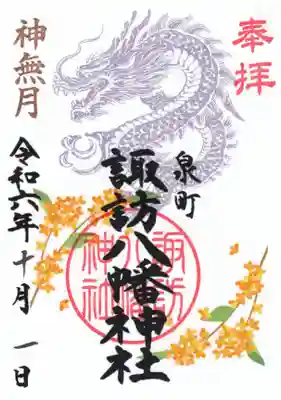 奉拝
泉町
諏訪八幡神社
諏訪八幡神社
神無月
令和六年十月一日